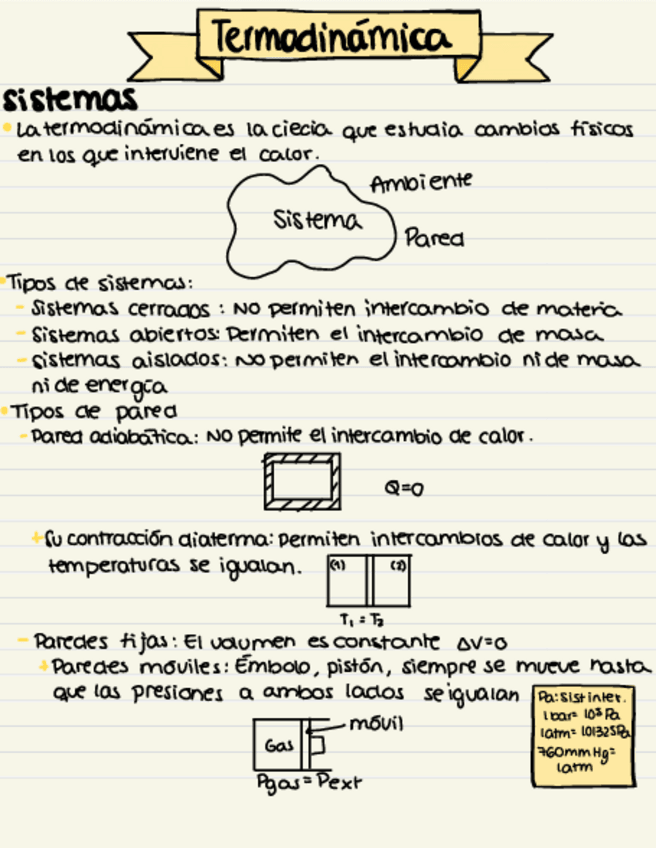 Termodinámica
sistemas
• La termodinámica es la ciecia que estudia cambios físicos
en los que interviene el calor.
Ambiente
Sistema
Pared
• Tipos de sistemas:
- Sistemas cerrados : No permiten intercambio de materia
- Sistemas abiertos: Permiten el intercambio de masa
- sistemas aislados: No permiten el intercambio ni de masa
ni de energía
• Tipos de pared
- Pared adiabática: No permite el intercambio de calor.
Q=0
+ Su contracción diaterma: Permiten intercambios de calor y las
temperaturas se igualan.
(1) (2)
T₁ = T₂
- Paredes fijas: El volumen es constante ΔV=0
+ Paredes móviles: Émbolo, pistón, siempre se mueve hasta
que las presiones a ambos lados se igualan
móvil
Gas
Pgas = Pext
Pa: Sist inter.
1 bar= 10⁵ Pa
1atm= 101325Pa
760mmHg=
1atm